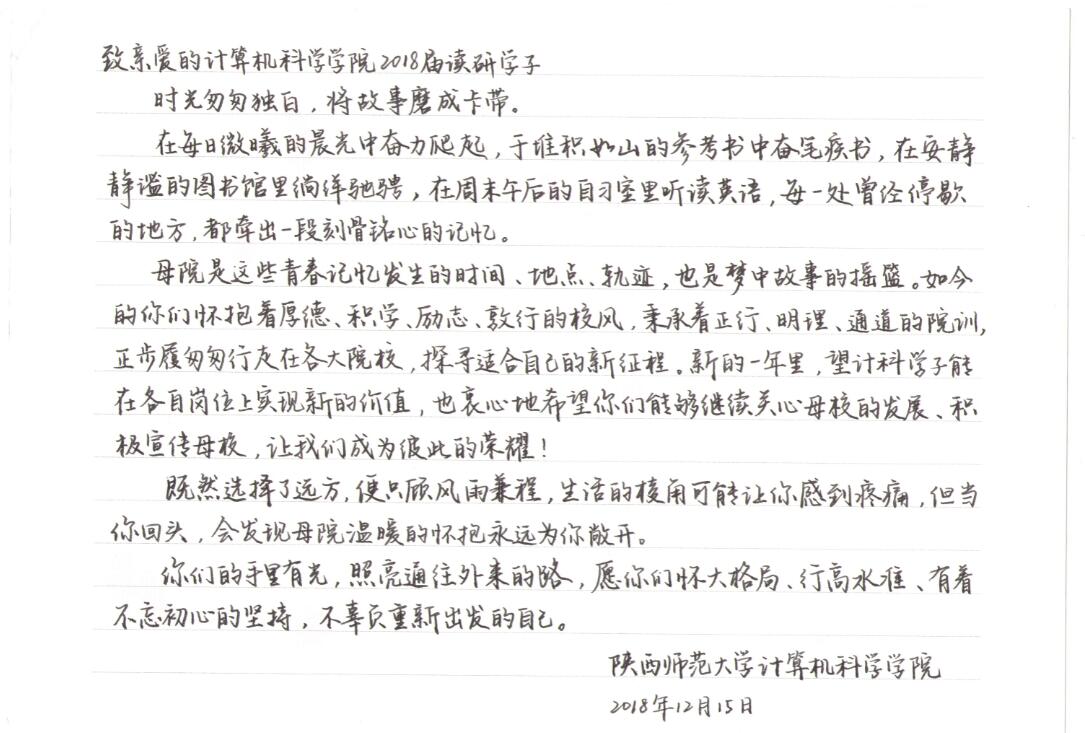 致亲爱的计算机科学学院2018届读研学子
时光匆匆独白，将故事磨成卡带。
在每日微曦的晨光中奋力爬起，于堆积如山的参考书中奋笔疾书，在安静
静谧的图书馆里徜徉驰骋，在周末午后的自习室里听读英语，每一处曾经停歇
的地方，都牵出一段刻骨铭心的记忆。
母院是这些青春记忆发生的时间、地点、轨迹，也是梦中故事的摇篮。如今
的你们怀抱着厚德、积学、励志、敦行的校风，秉承着正行、明理、通道的院训，
正步履匆匆行走在各大院校，探寻适合自己的新征程。新的一年里，望计科学子能
在各自岗位上实现新的价值，也衷心地希望你们能够继续关心母校的发展、积
极宣传母校，让我们成为彼此的荣耀！
既然选择了远方，便只顾风雨兼程，生活的棱角可能让你感到疼痛，但当
你回头，会发现母院温暖的怀抱永远为你敞开。
你们的手里有光，照亮通往外来的路，愿你们怀大格局、行高水准、有着
不忘初心的坚持，不辜负重新出发的自己。
陕西师范大学计算机科学学院
2018年12月15日